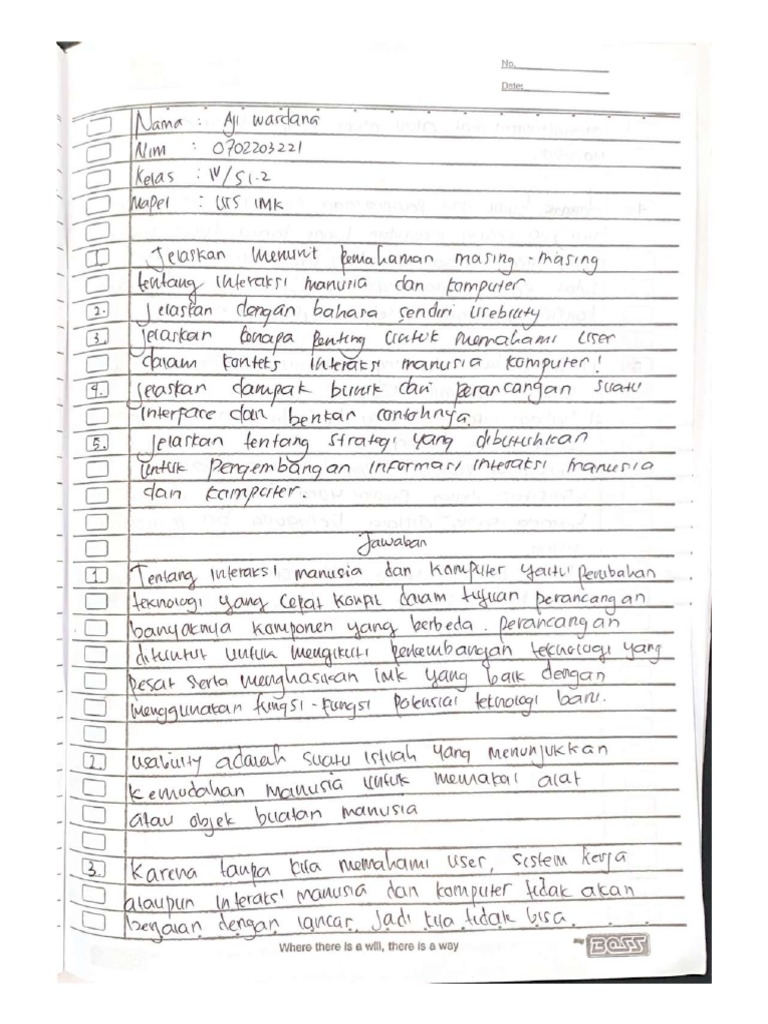 No.
Date:
Nama : Aji wardana
Nim : 0702203221
Kelas : IV/SI-2
Mapel : UTS IMK
1. Jelaskan menurut pemahaman masing-masing
tentang interaksi manusia dan komputer
2. Jelaskan dengan bahasa sendiri usebility
3. Jelaskan kenapa penting untuk memahami user
dalam konteks interaksi manusia komputer!
4. Jelaskan dampak buruk dari perancangan suatu
interface dan berikan contohnya.
5. Jelaskan tentang strategi yang dibutuhkan
untuk pengembangan informasi interaksi manusia
dan komputer.
Jawaban
1. Tentang interaksi manusia dan komputer yaitu perubahan
teknologi yang cepat konflik dalam tujuan perancangan
banyaknya komponen yang berbeda. perancangan
dituntut untuk mengikuti perkembangan teknologi yang
pesat serta menghasilkan imk yang baik dengan
menggunakan fungsi-fungsi potensial teknologi baru.
2. usability adalah suatu istilah yang menunjukkan
kemudahan manusia untuk memakai alat
atau objek buatan manusia
3. Karena tanpa kita memahami user, sistem kerja
ataupun interaksi manusia dan komputer tidak akan
berjalan dengan lancar. Jadi kita tidak bisa
Where there is a will, there is a way
BOSS